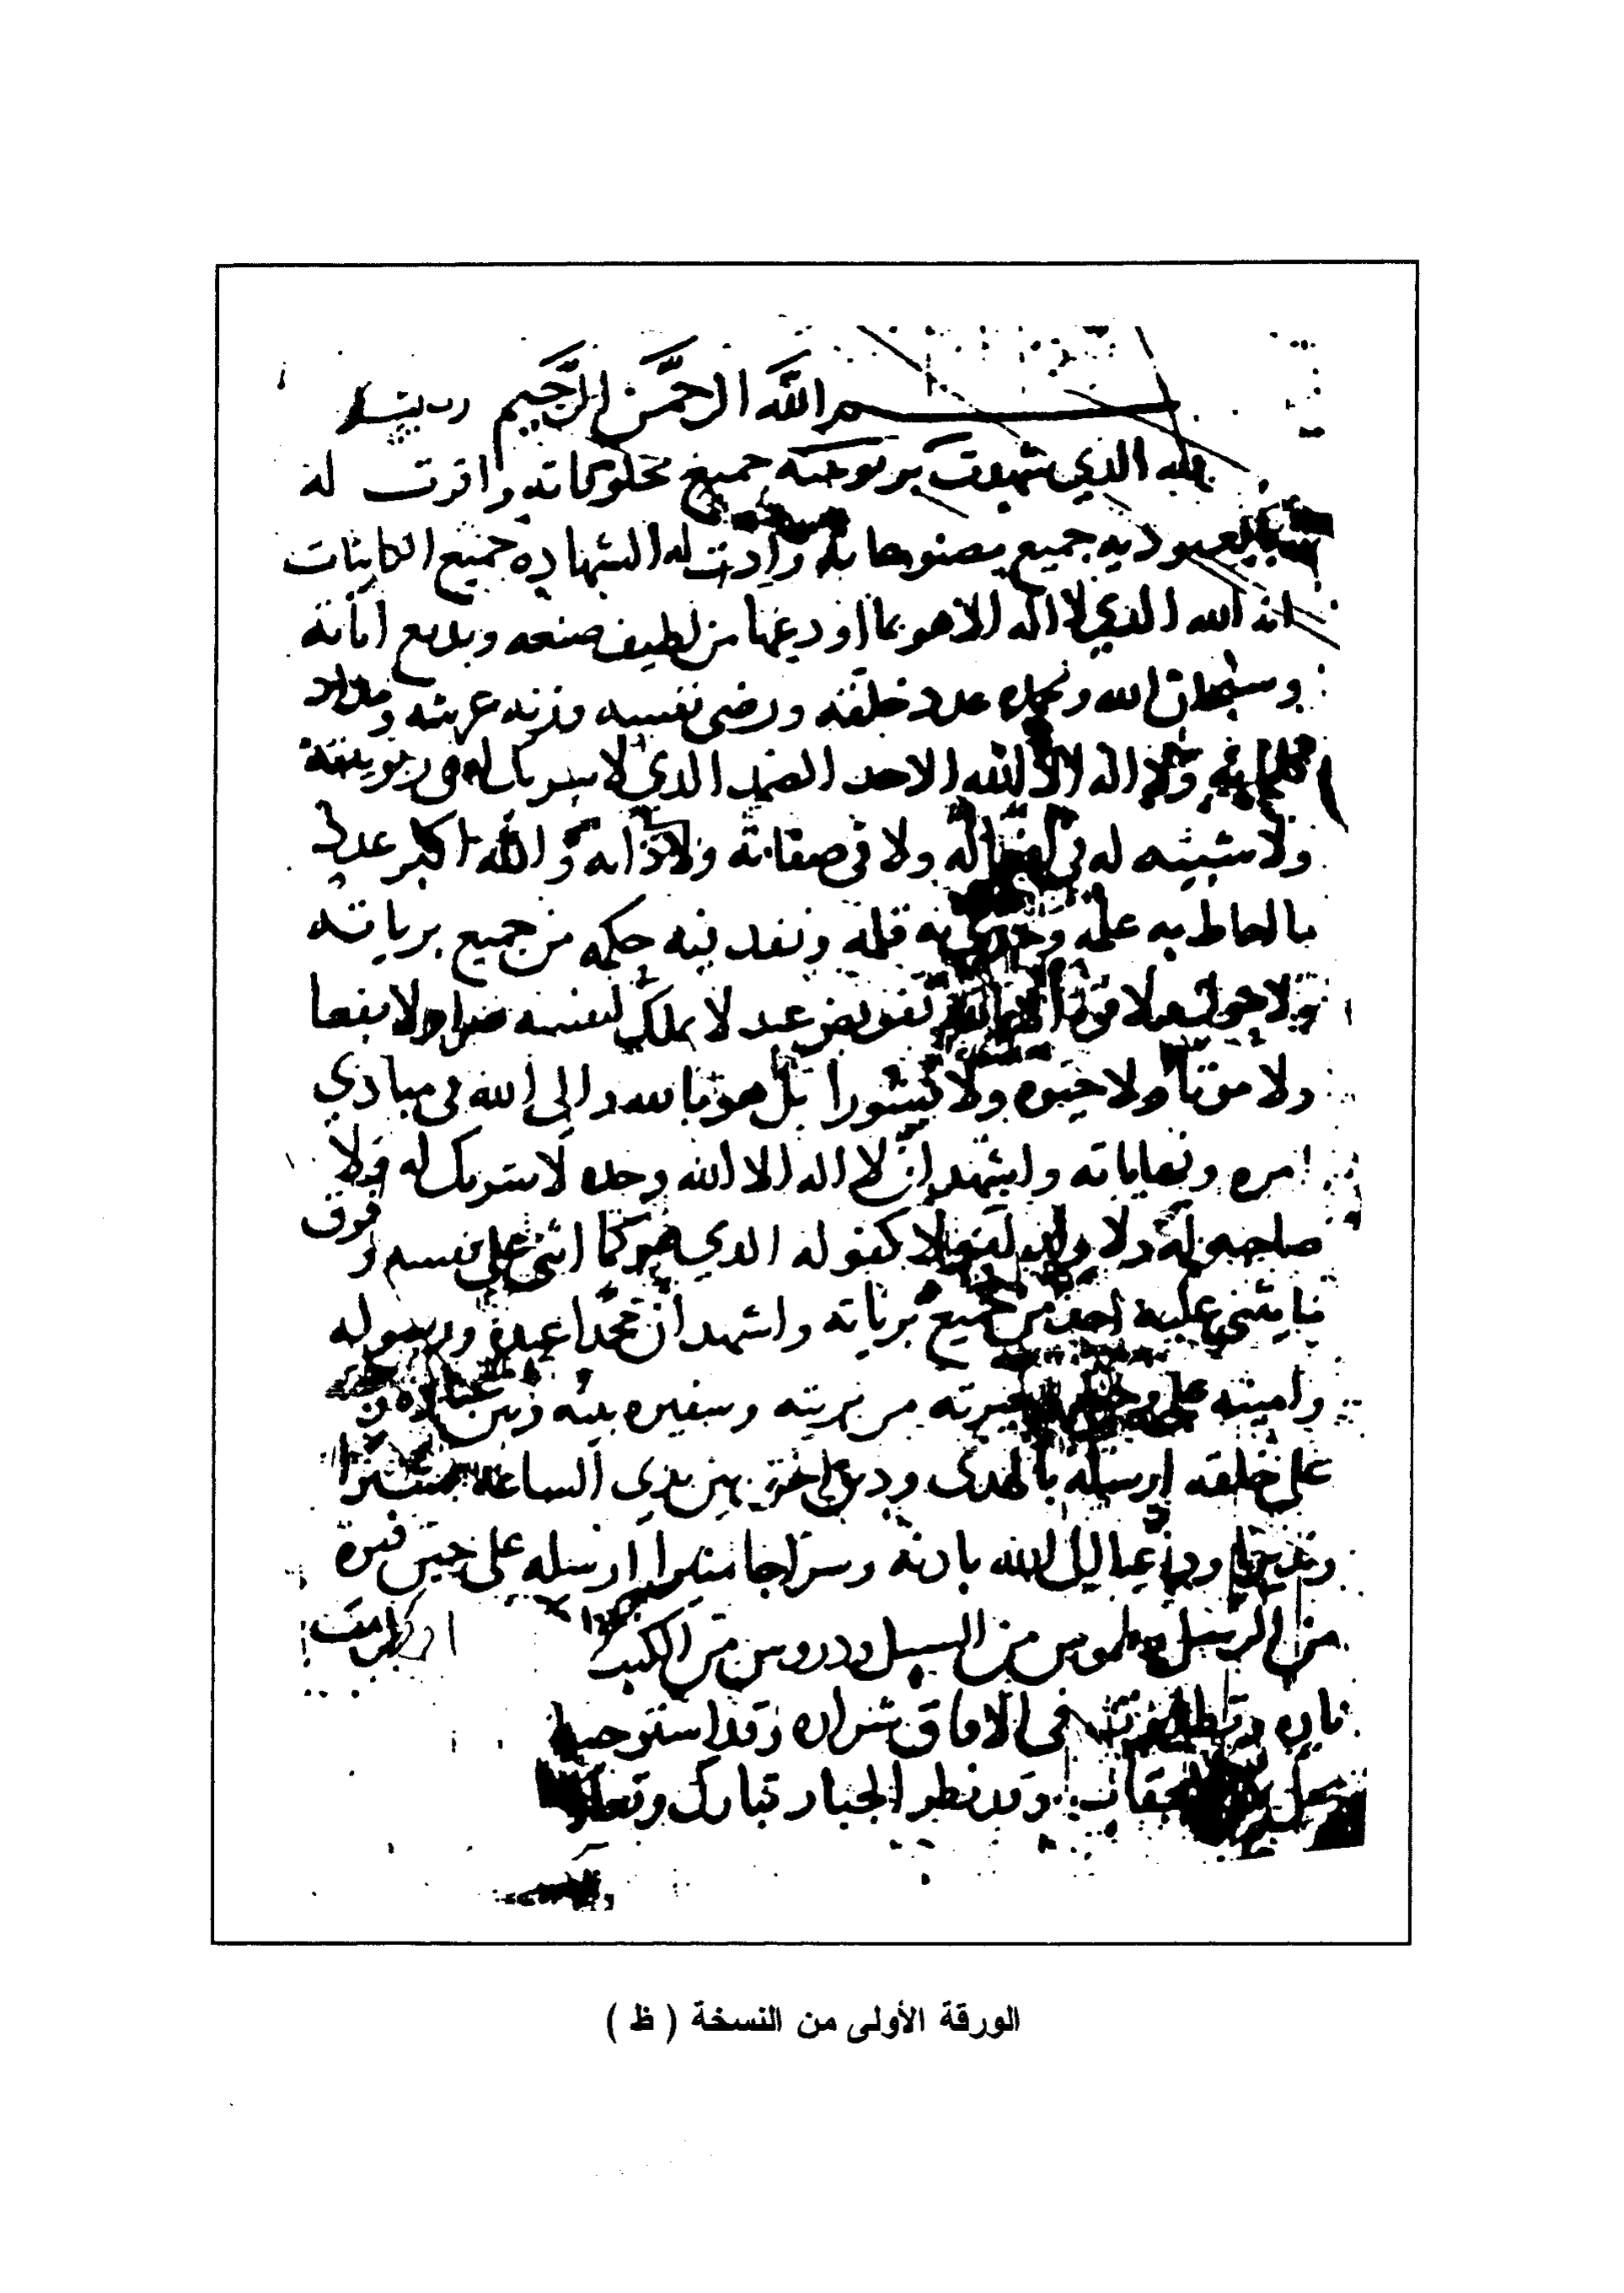 بسم الله الرحمن الرحيم رب يسر
لله الذي شهدت بربوبيته جميع مخلوقاته واقرت له
بالعبوديه جميع مصنوعاته وادت له الشهاده جميع الكاينات
انه الله الذي لا اله الا هو بما اودعها من لطيف صنعه وبديع اياته
وسبحان الله وبحمده عدد خلقه ورضى نفسه وزنه عرشه ومداد
كلماته ولا اله الا الله الاحد الصمد الذي لا شريك له في ربوبيته
ولا شبيه له في افعاله ولا في صفاته ولا ذاته والله اكبر عدد
ما احاط به علمه وجرى به قلمه ونفد فيه حكمه من جميع برياته
ولا حول ولا قوة الا بالله تفويض عبد لا يملك لنفسه ضرا ولا نفعا
ولا موتا ولا حيوه ولا نشورا بل هو بالله والى الله في مبادي
امره ونهاياته واشهد ان لا اله الا الله وحده لا شريك له ولا
صاحبه له ولا ولد له ولا كفو له الذي هو كما اثنى على نفسه وفوق
ما يثني عليه احد من جميع برياته واشهد ان محمدا عبده ورسوله
وامينه على وحيه وخيرته من بريته وسفيره بينه وبين عباده
على خلقه ارسله بالهدى ودين الحق بين يدي الساعه بشيرا
ونذيرا وداعيا الى الله باذنه وسراجا منيرا ارسله على حين فترة
من الرسل وطموس من السبل ودروس من الكتب
ناره وتطاير في الافاق شراره وقد استوجب
وقد نظر الجبار تبارك وتعالى
الورقة الأولى من النسخة ( ظ )